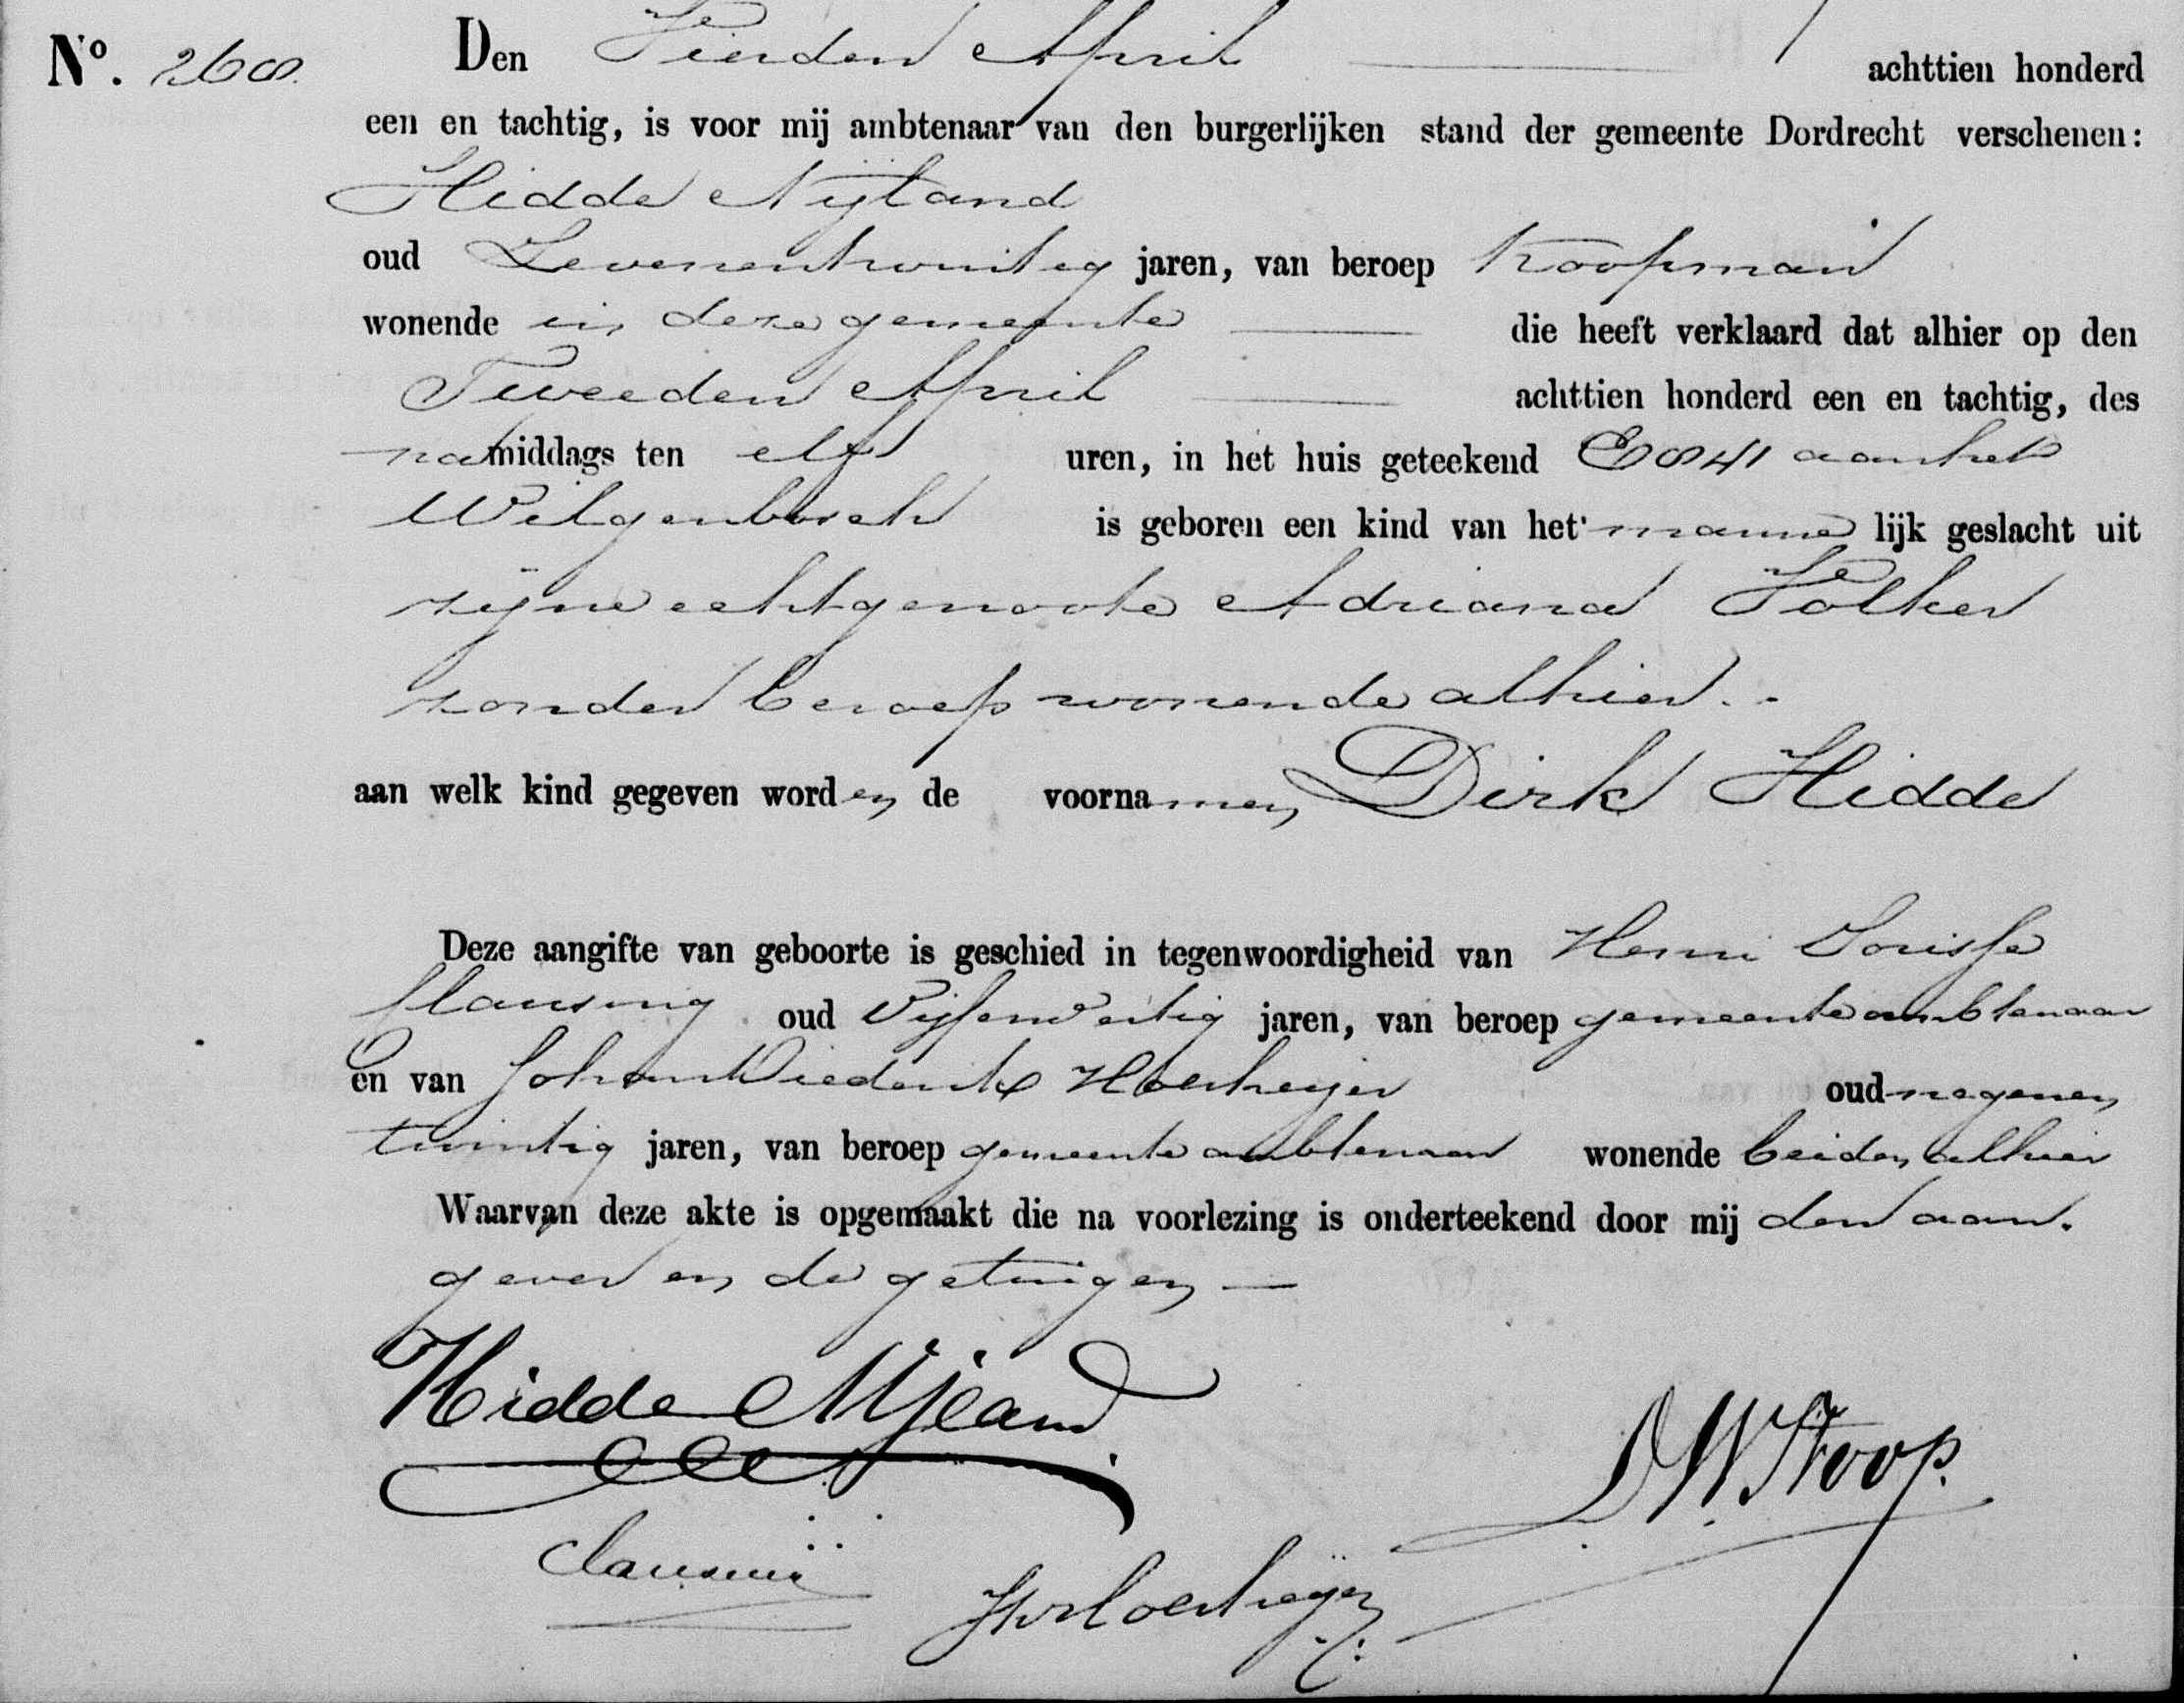 No. 268. Den Vierden April achttien honderd
een en tachtig, is voor mij ambtenaar van den burgerlijken stand der gemeente Dordrecht verschenen:
Hidde Nijland
oud Zevenentwintig jaren, van beroep Koopman
wonende in deze gemeente die heeft verklaard dat alhier op den
Tweeden April achttien honderd een en tachtig, des
namiddags ten elf uren, in het huis geteekend E 841 aan het
Wilgenbosch is geboren een kind van het mannelijk geslacht uit
zijne echtgenoote Adriana Volker
zonder beroep wonende alhier.
aan welk kind gegeven worden de voornamen Dirk Hidde
Deze aangifte van geboorte is geschied in tegenwoordigheid van Henri
Clausing oud Vijfenveertig jaren, van beroep gemeenteambtenaar
en van Johan Diederik Hoerheijer oud negenen
twintig jaren, van beroep gemeenteambtenaar wonende beiden alhier
Waarvan deze akte is opgemaakt die na voorlezing is onderteekend door mij den aan-
gever en de getuigen —
Hidde Nijland
DWStoop.
Clausing